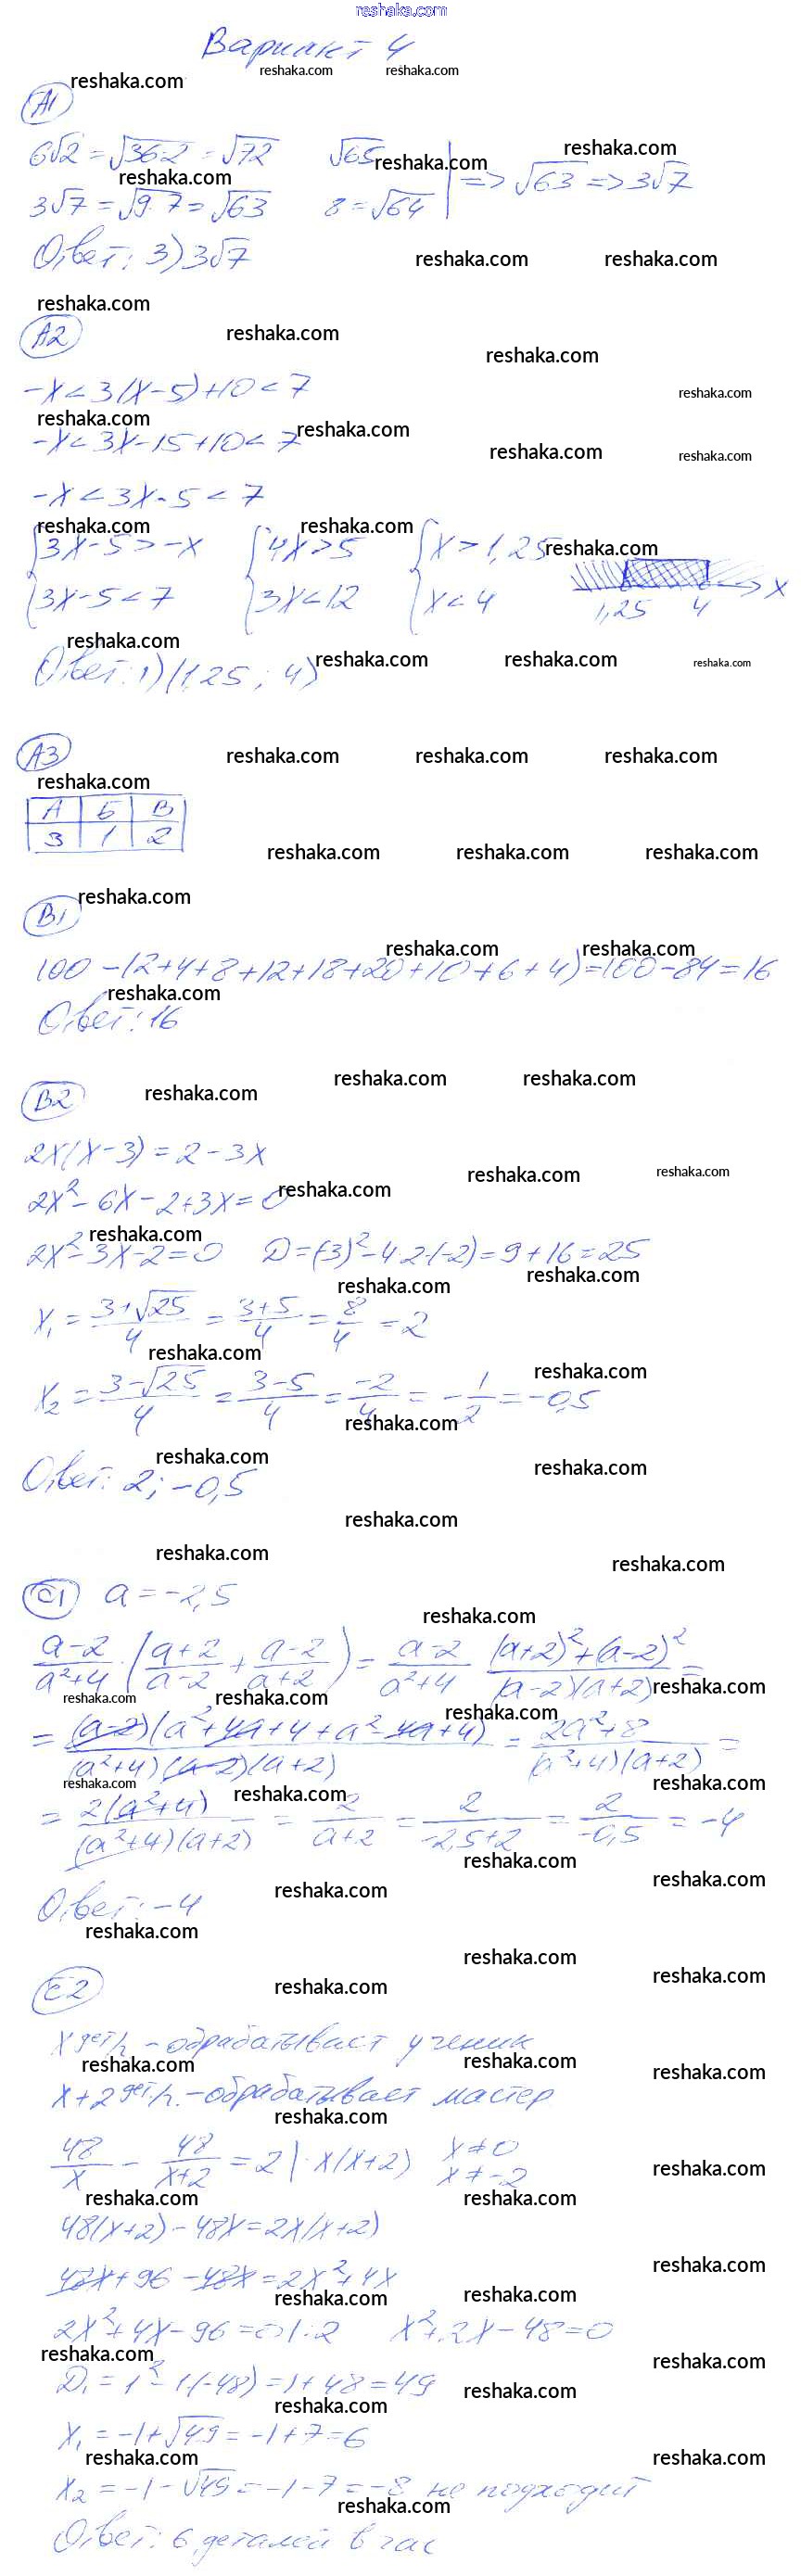 reshaka.com
Вариант 4
А1
6√2 = √36·2 = √72    √65
3√7 = √9·7 = √63    8 = √64 | => √63 => 3√7
Ответ: 3) 3√7
А2
-x < 3(x-5)+10 < 7
-x < 3x-15+10 < 7
-x < 3x-5 < 7
{3x-5 > -x    {4x > 5    {x > 1,25
{3x-5 < 7    {3x < 12    {x < 4    1,25    4    x
Ответ: 1) (1,25 ; 4)
А3
А | Б | В
3 | 1 | 2
В1
100 - (2+4+8+12+18+20+10+6+4) = 100-84 = 16
Ответ: 16
В2
2x(x-3) = 2-3x
2x²-6x-2+3x=0
2x²-3x-2=0    D=(-3)²-4·2·(-2)=9+16=25
x₁ = (3+√25)/4 = (3+5)/4 = 8/4 = 2
x₂ = (3-√25)/4 = (3-5)/4 = -2/4 = -1/2 = -0,5
Ответ: 2; -0,5
С1 a = -2,5
(a-2)/(a²+4) · ((a+2)/(a-2) + (a-2)/(a+2)) = (a-2)/(a²+4) · ((a+2)²+(a-2)²)/((a-2)(a+2)) =
= ((a-2)(a²+4a+4+a²-4a+4))/((a²+4)(a-2)(a+2)) = (2a²+8)/((a²+4)(a+2)) =
= (2(a²+4))/((a²+4)(a+2)) = 2/(a+2) = 2/(-2,5+2) = 2/(-0,5) = -4
Ответ: -4
С2
x дет/ч - обрабатывает ученик
x+2 дет/ч - обрабатывает мастер
48/x - 48/(x+2) = 2 | · x(x+2)    x≠0    x≠-2
48(x+2) - 48x = 2x(x+2)
48x+96-48x = 2x²+4x
2x²+4x-96=0 |:2    x²+2x-48=0
D₁ = 1²-1·(-48) = 1+48 = 49
x₁ = -1+√49 = -1+7 = 6
x₂ = -1-√49 = -1-7 = -8 не подходит
Ответ: 6 деталей в час